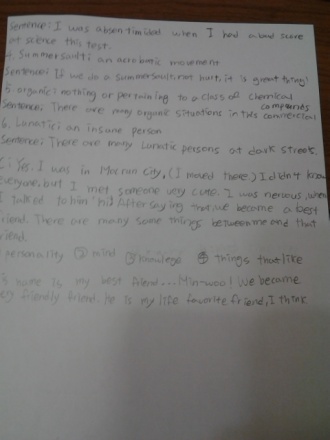 Sentence: I was absentimided when I had a bad score
at science this test.
4. Summersault: an aerobatic movement
Sentence: If we do a summersault, not but, it is great thing!
5. organic: nothing or pertaining to a class of chemical compounds
Sentence: There are many organic situations in this commercial
6. Lunatic: an insane person
Sentence: There are many Lunatic persons at dark street.
: Yes. I was in Mokrun City, (I moved there.) I didn't know
everyone, but I met someone very cute. I was nervous, when
I talked to him 'hi' After saying that we became a best
friend. There are many same things between me and that
friend.
personality ② mind ③ knowlege ④ things that like
name is my best friend... Min-woo! We became
friendly friend. He is my life favorite friend, I think